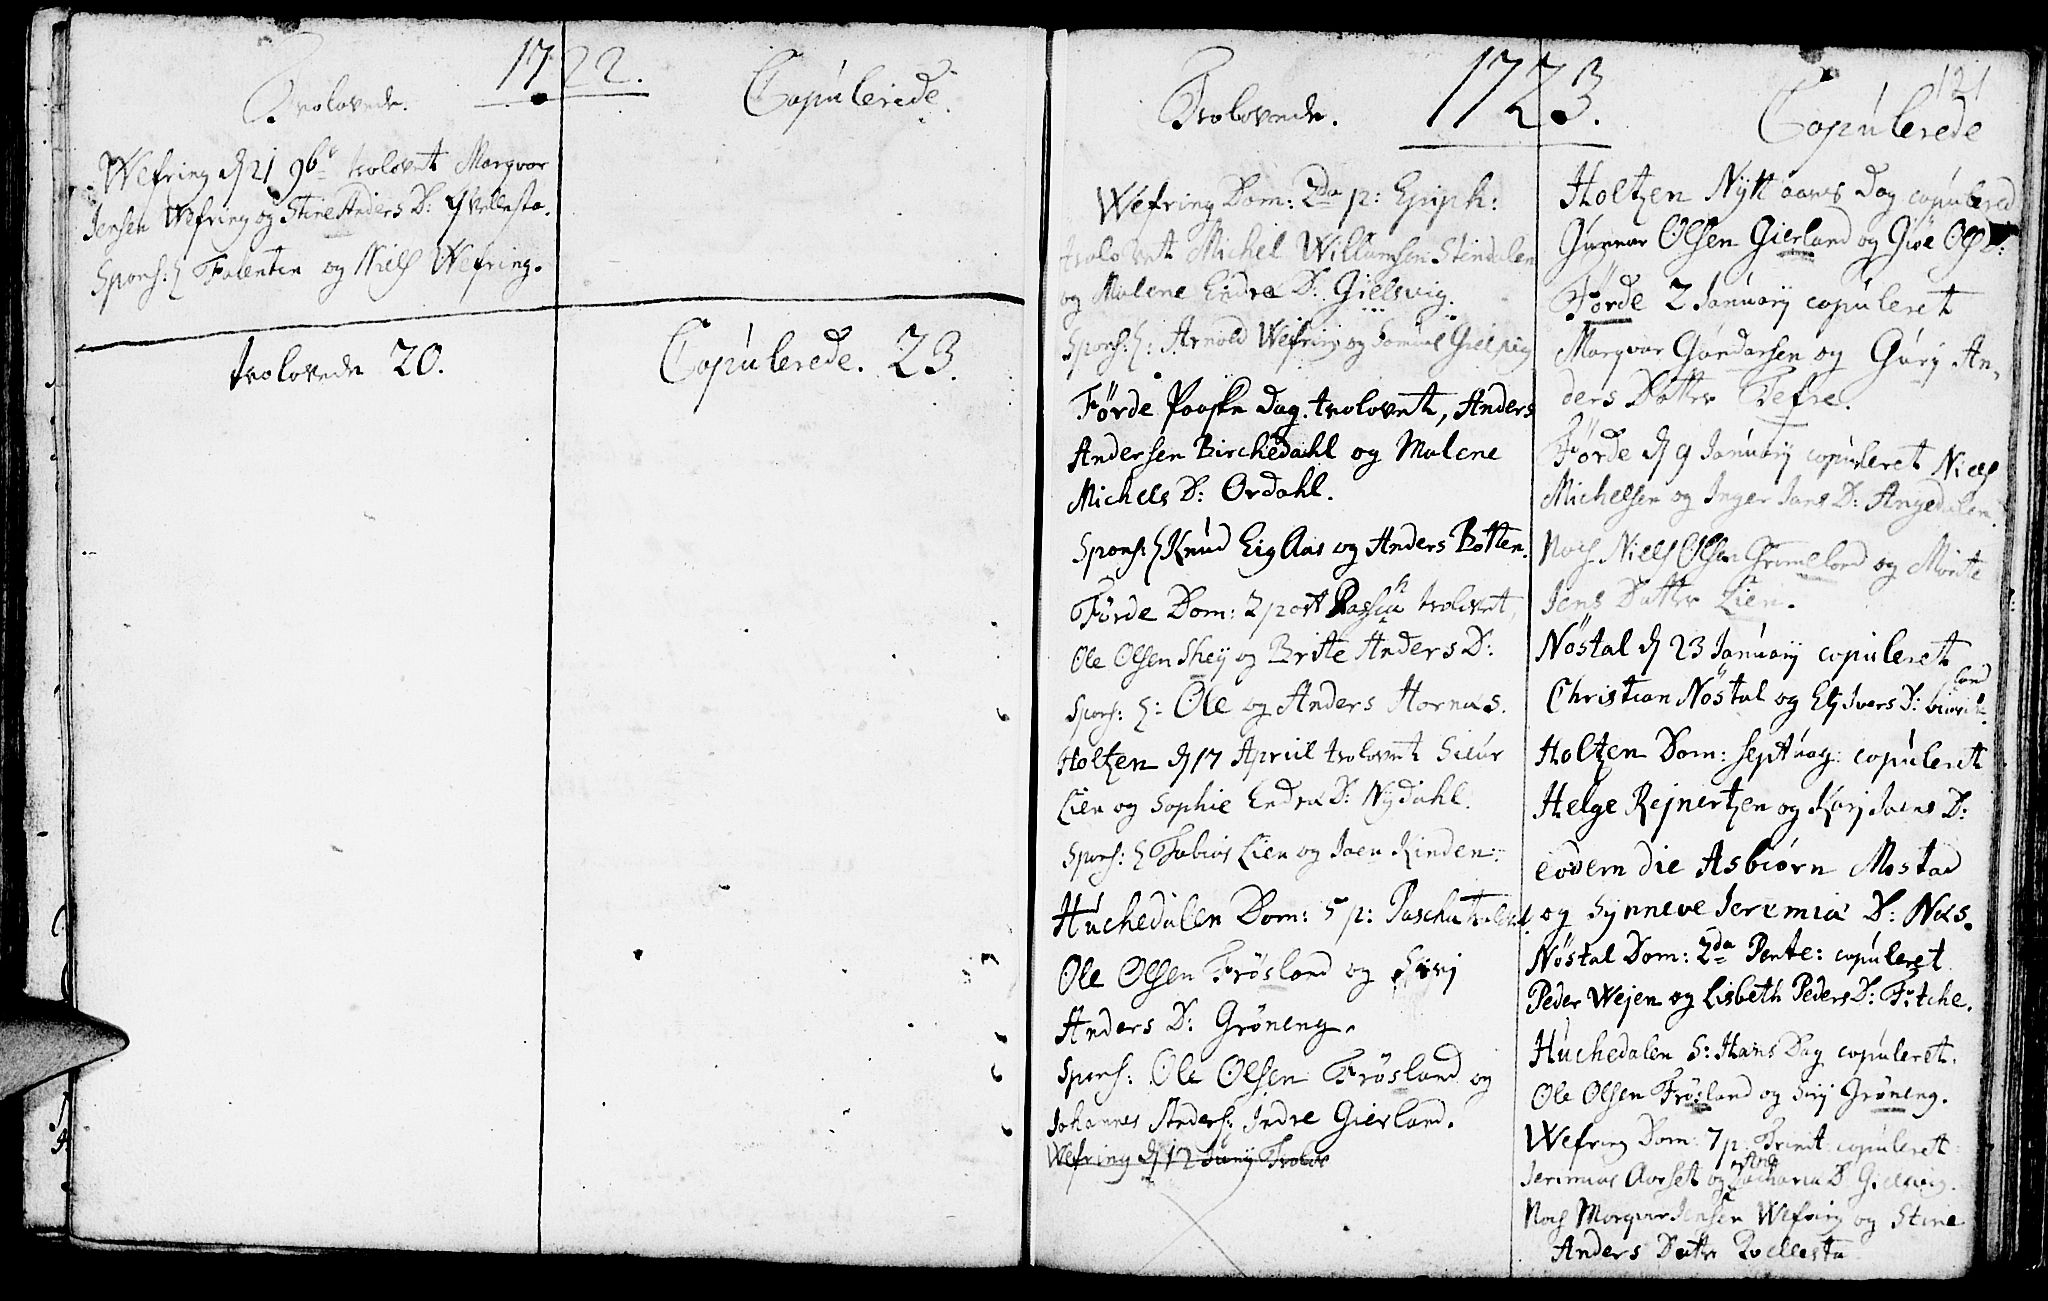 1722.
Trolovede.
Wefring d 21 9br trolovet Marqvar
Jensen Wefring og Stine Anders D: Qvellesta.
Spons: Falentin og Niels Wefring.
trolovede 20.
Copulerede.
Copulerede. 23.
1723.
121
Trolovede.
Wefring Dom: 2da p: Epiph:
trolovet Michel Willumsen Stendalen
og Malene Endre D: Gielsvig.
Spons: Arnold Wefring og Samuel Gielsvig
Førde Paaske dag. trolovet, Anders
Andersen Birchedahl og Malene
Michels D: Ordahl.
Spons: Knud Eig Aas og Anders Botten.
Førde Dom: 2 post Pasch trolovet,
Ole Olsen Skey og Britte Anders D:
Spons: Ole og Anders Hornæs.
Holtzen d 17 Apriil trolovet Siur
Lien og Sophie Endre D: Nydahl.
Spons: Tobias Lien og Joen Kinden.
Huchedalen Dom: 5 p: Pascha trolovet
Ole Olsen Frøsland og Sirj
Anders D: Grøneng.
Spons: Ole Olsen Frøsland og
Johannes Anders: Indre Gierland.
Wefring d 12 Junij Trolov
Copulerede
Holtzen Nytt aars Dag copulered
Gunnar Olsen Gierland og Giøe Ols D:
Førde 2 January copuleret
Marqvar Gundersen og Gurj An,
ders Datter Tefre.
Førde d 9 January copuleret Niels
Michelsen og Inger Jans D: Angedalen.
Noch Niels Olsen Grimelond og Marite
Jens Datter Lien.
Nøstal d 23 January copuleret
Christian Nøstal og Elj Ivers D:
Holtzen Dom: septuag: copuleret
Helge Rejnertzen og Karj Joens D:
eodem die Asbiørn Mostad
og Synneve Jeremiæ D: Næs.
Nøstal Dom: 2da Pente: copuleret
Peder Wejen og Lisbeth Peders D: Fitche.
Huchedalen S: Hans Dag copuleret.
Ole Olsen Frøsland og Sirj Grøneng.
Wefring Dom: 7 p: Trinit copuleret
Jerimias Aarset og Zacharia D Gielsvig.
Noch Marqvar Jensen Wefring og Stine
Anders Datter Qvellesta